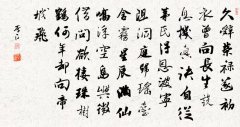 久辭榮祿遂初
衣曾向長生說
息機真訣自從
茅氏得恩波寧
阻洞庭歸瑤臺
含霧星辰滿仙
嶠浮空島嶼微
借問欲棲珠樹
鶴何年却向帝
城飛